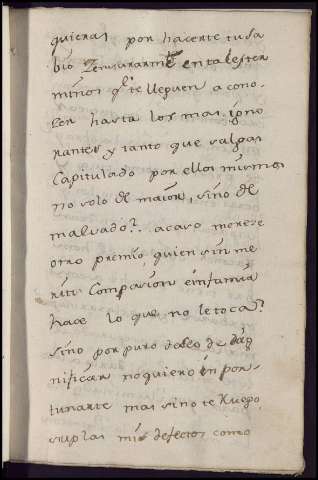 quieras por hacerte tu sa
bio Zensurarme en tales ter
minos q.e te lleguen a cono
zer hasta los mas igno
rantes y tanto que salgas
Capitulado por ellos mismos
no solo de maior, sino de
malvado?. acaso mereze
otro premio quien sin me
ritu Compasion e infamia
hace lo que no le toca?
sino por puro deseo de dag
nificar no quiero in por
tunarte mas sino te Ruego
suplas mis defectos como